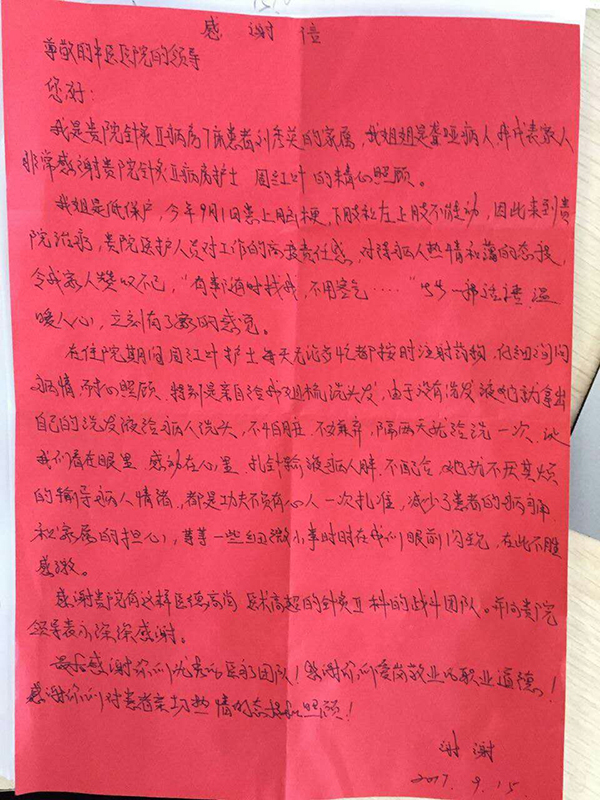 感谢信
尊敬的中医医院的领导
您好:
我是贵院针灸Ⅱ病房7床患者刘秀英的家属,我姐姐是聋哑病人,我代表家人
非常感谢贵院针灸Ⅱ病房护士 周红叶的精心照顾。
我姐是低保户,今年9月1日患上脑梗,下肢和左上肢不能动,因此来到贵
院治病,贵院医护人员对工作的高度责任感,对待病人热情和蔼的态度,
令我家人赞叹不已,"有事随时找我,不用客气……"句句一番话语,温
暖人心,立刻有了家的感觉。
在住院期间周红叶护士每天无论多忙都按时注射药物,仔细询问
病情,耐心照顾,特别是亲自给我姐梳洗头发,由于没有洗发液她就拿出
自己的洗发液给病人洗头,不怕脏,不嫌弃,隔两天就给洗一次,让
我们看在眼里 感动在心里,扎针输液病人胖,不配合,她就不厌其烦
的辅导病人情绪,都是功夫不负有心人一次扎准,减少了患者的病痛
和家属的担心,等等一些细微小事时时在我们眼前闪现,在此不胜
感激。
感谢贵院有这样医德高尚 医术高超的针灸Ⅱ科的战斗团队。并向贵院
领导表示深深感谢。
最后感谢你们优秀的医疗团队!感谢你们爱岗敬业的职业道德!
感谢你们对患者亲切热情的态度和照顾!
谢谢
2017.9.15